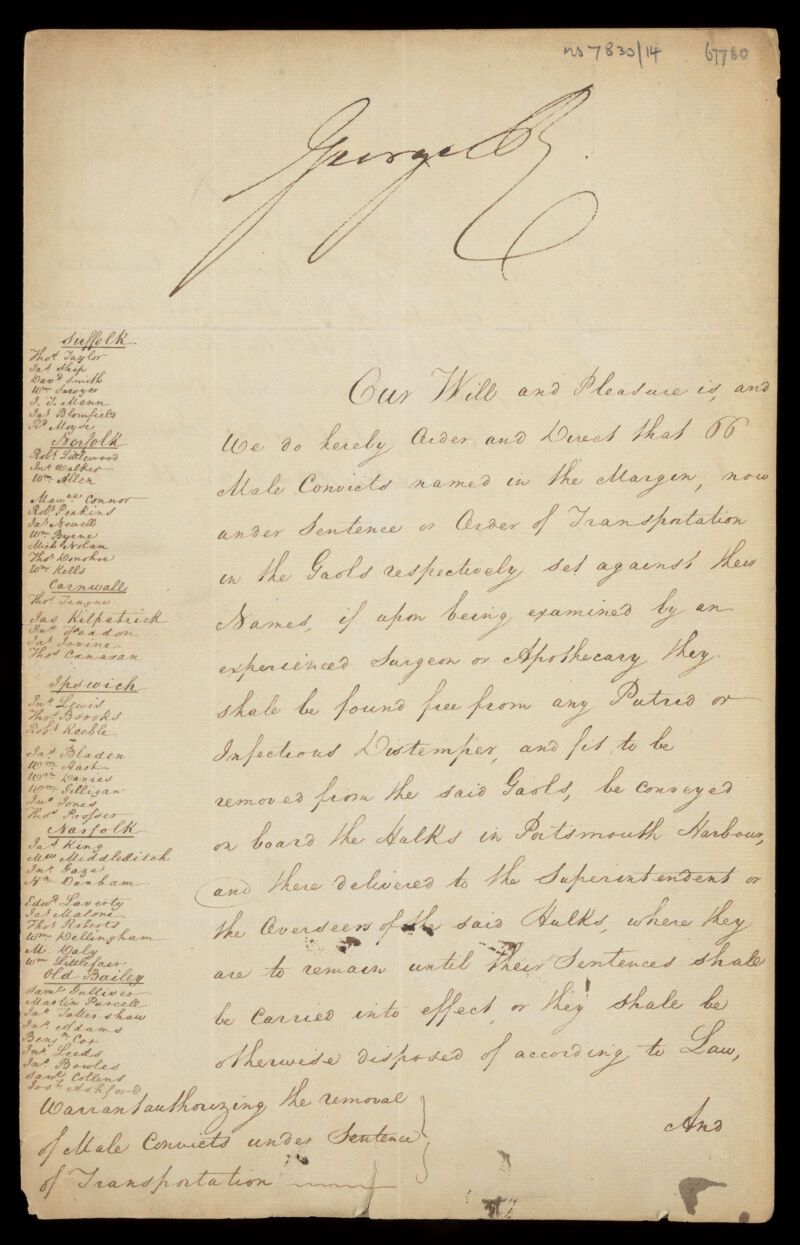 MS 7830/14 67780
George R
Suffolk
Thos Taylor
Jas Ship
Davd Smith
Wm Sawyer
J. J. Mann
Jas Blomfield
Rd Moyse
Norfolk
Robt Littlewood
Jno Walker
Wm Allen
Connor
Robt Perkins
Jas Newell
Wm Byrne
Mich Nolan
Thos Donohoe
Wm Kells
Cornwall
Thos Teague
Jas Kilpatrick
Jno Headon
Jas Irvine
Thos Canavan
Ipswich
Jno Lewis
Thos Brooks
Robt Keeble
Jas Bladen
Wm Hart
Wm Davies
Wm Gilligan
Jno Jones
Thos Prosser
Norfolk
Jas King
Mw Middleditch
Jno Gaze
Wm Dunham
Edwd Laverty
Jas Malone
Thos Roberts
Wm Dellingham
M Daly
Wm Littlefair
Old Bailey
Saml Gulliver
Martin Purcell
Jno Tattershaw
Jno Adams
Benjn Cox
Jno Leeds
Jno Bowles
Saml Collins
Josh Ashford
Our Will and Pleasure is, and
We do hereby Order and Direct that 66
Male Convicts named in the Margin, now
under Sentence or Order of Transportation
in the Gaols respectively set against their
Names, if upon being examined by an
experienced Surgeon or Apothecary they
shall be found free from any Putrid or
Infectious Distemper, and fit to be
removed from the said Gaols, be conveyed
on board the Hulks in Portsmouth Harbour,
and there delivered to the Superintendent or
the Overseers of the said Hulks, where they
are to remain until their Sentences shall
be Carried into effect, or they shall be
otherwise disposed of according to Law,
And
Warrant authorizing the removal
of Male Convicts under Sentence
of Transportation